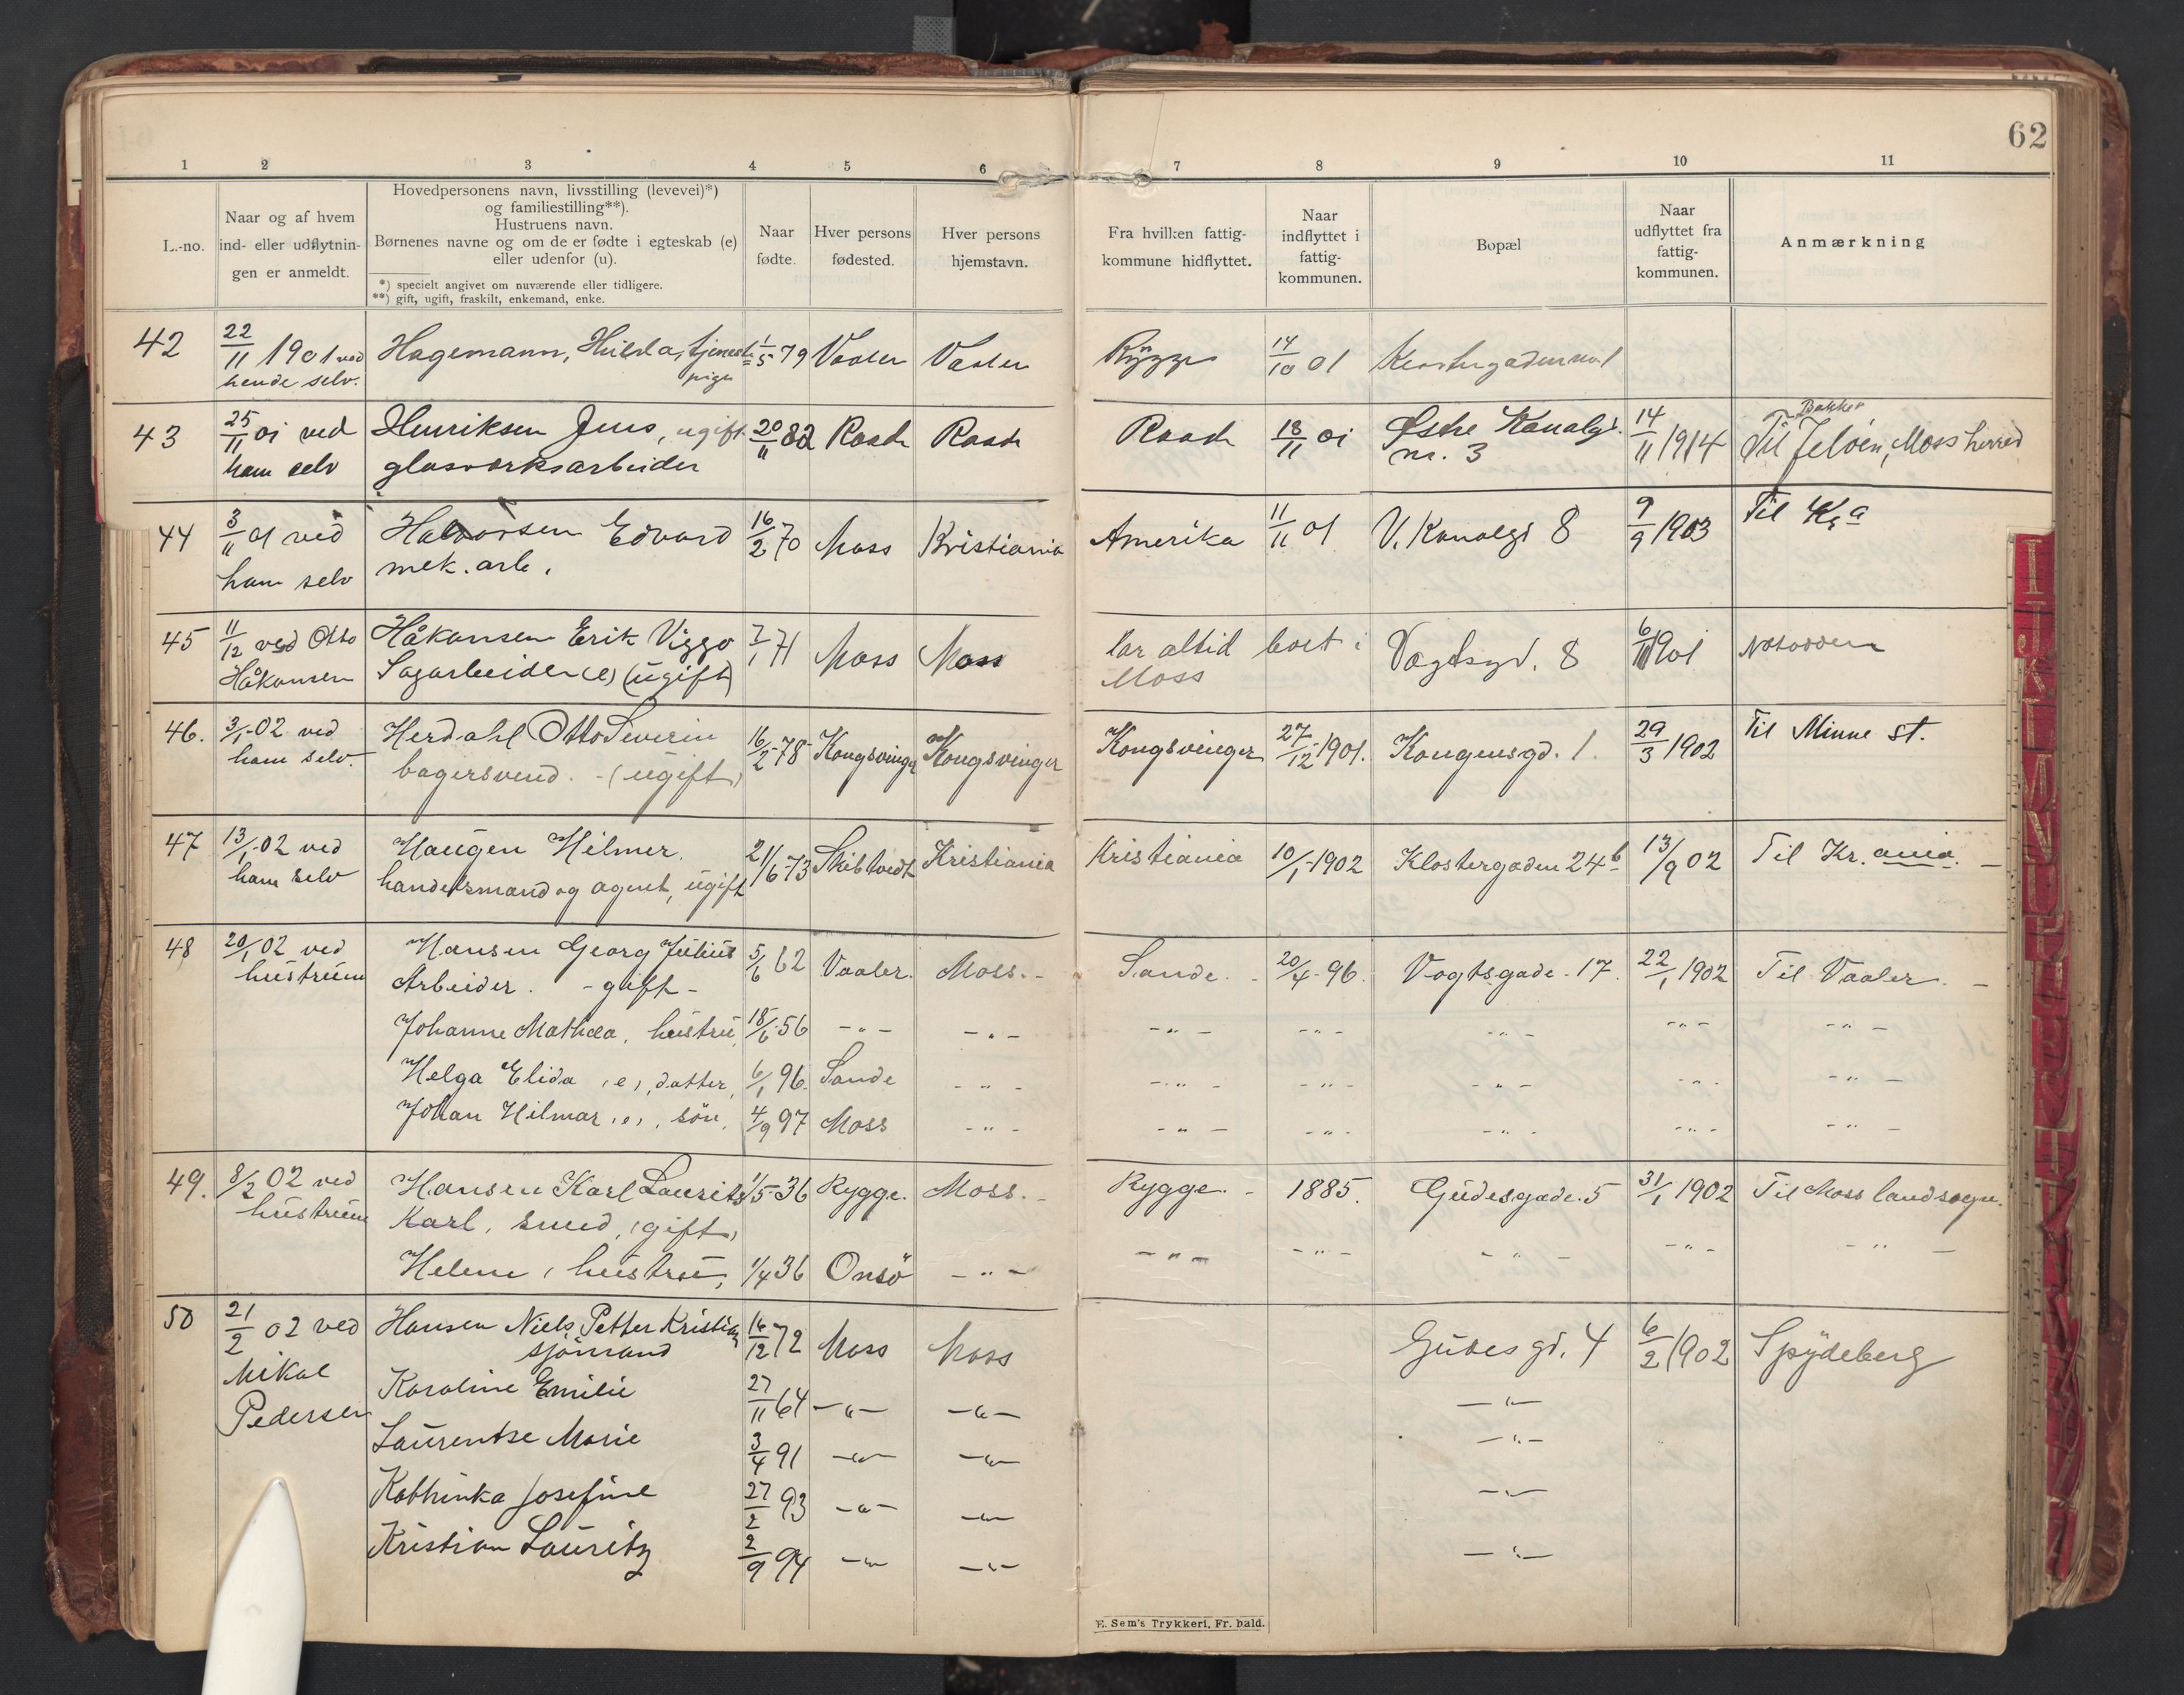 62
1 2 3 4 5 6 7 8 9 10 11
L.-no.
Naar og af hvem
ind- eller udflytnin-
gen er anmeldt.
Hovedpersonens navn, livsstilling (levevei)*)
og familiestilling**).
Hustruens navn.
Børnenes navne og om de er fødte i egteskab (e)
eller udenfor (u).
*) specielt angivet om nuværende eller tidligere.
**) gift, ugift, fraskilt, enkemand, enke.
Naar
fødte.
Hver persons
fødested.
Hver persons
hjemstavn.
Fra hvilken fattig-
kommune hidflyttet.
Naar
indflyttet i
fattig-
kommunen.
Bopæl
Naar
udflyttet fra
fattig-
kommunen.
Anmærkning
42 22/11 1901 ved Hagemann, Hilda, tjeneste- 1/5 79 Vaaler Vaaler Rygge 14/10 01
hende selv. pige
43 25/11 01 ved Henriksen Jens, ugift 20/11 82 Raade Raade Raade 18/11 01 Østre Kanalgd. 14/11 1914 Til Jeløen, Moss herred
ham selv glasværksarbeider nr. 3
44 3/11 01 ved Halvorsen Edvard 16/2 70 Moss Kristiania Amerika 11/11 01 V. Kanalgd 8 9/9 1903 Til Kr.a
ham selv mek. arb.
45 11/12 ved Otto Håkansen Erik Viggo 7/1 71 Moss Moss har altid boet i Vogtsgd. 8 1901 Notodden
Håkansen Sagarbeider (e) (ugift) Moss
46. 3/1-02 ved Herdahl Otto Severin 16/2-78 Kongsvinger Kongsvinger Kongsvinger 27/12-1901. Kongensgd. 1. 29/3 1902 Til Minne st.
ham selv. bagersvend. - (ugift)
47 13/1-02 ved Haugen Hilmer. 21/6-73 Skibtvedt Kristiania Kristiania 10/1-1902 Klostergaden 24b 13/9 02 Til Kr.ania. —
ham selv handelsmand og agent, ugift
48 20/1 02 ved Hansen Georg Julius 5/6 62 Vaaler. Moss.- Sande. - 20/4-96. Vogtsgade - 17. 22/1 1902 Til Vaaler. —
hustruen Arbeider. - gift -
Johanne Mathilda, hustru, 18/6 56 - " - - " - - " - - " - - " - - " - - " -
Helga Elida (e), datter, 6/1 96. Sande - " - - " - - " - - " - - " - - " -
Johan Hilmar (e), søn, 4/9 97 Moss - " - - " - - " - - " - - " - - " -
49. 8/2 02 ved Hansen Karl Lauritz 1/5-36 Rygge. Moss.- Rygge. - 1885. Gudesgade. 5 31/1 1902 Til Moss landsogn.
hustruen Karl, smed, (gift)
Helene, hustru, 1/4 36 Onsö - " - - " - - " - - " - - " - - " -
50 21/2 02 ved Hansen Niels Petter Kristian 16/12 72 Moss Moss Gudes gd. 4 6/2 1902 Spydeberg
Mikal sjömand
Pedersen Karoline Emilie 27/11 64 - " - - " - - " -
Laurentse Marie 3/4 91 - " - - " - - " -
Kathinka Josefine 27/2 93 - " - - " - - " -
Kristian Lauritz 2/9 94 - " - - " - - " -
E. Sem's Trykkeri, Fr. hald.
I J K L M N O P